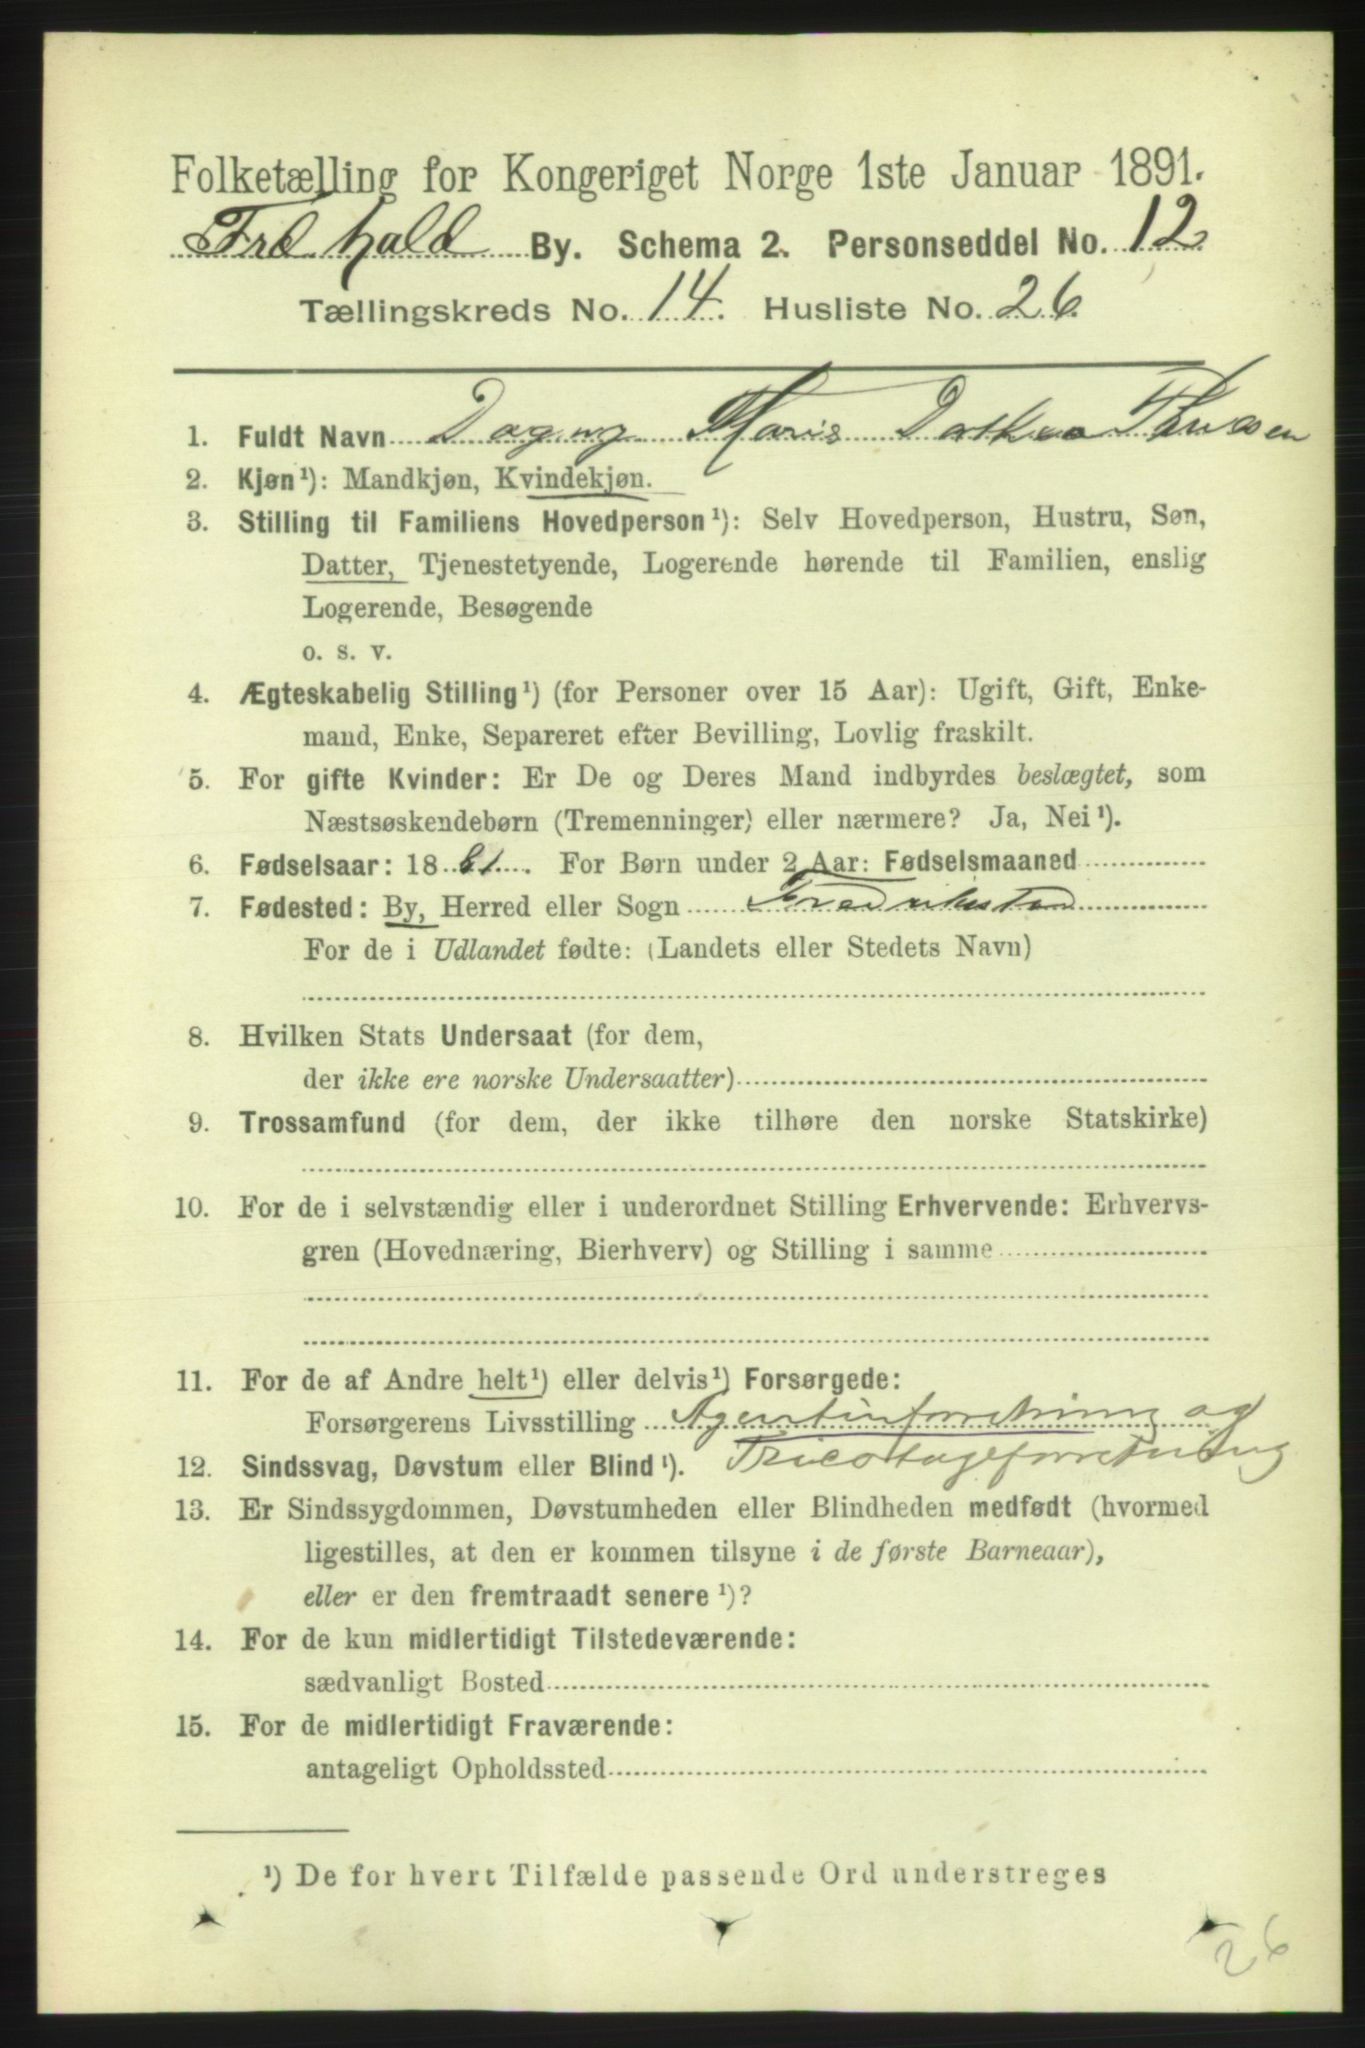 Folketælling for Kongeriget Norge 1ste Januar 1891.
Frd hald By. Schema 2. Personseddel No. 12
Tællingskreds No. 14. Husliste No. 26
1. Fuldt Navn Dagny Marie
2. Kjøn¹): Mandkjøn, Kvindekjøn.
3. Stilling til Familiens Hovedperson¹): Selv Hovedperson, Hustru, Søn,
Datter, Tjenestetyende, Logerende hørende til Familien, enslig
Logerende, Besøgende
o. s. v.
4. Ægteskabelig Stilling¹) (for Personer over 15 Aar): Ugift, Gift, Enke-
mand, Enke, Separeret efter Bevilling, Lovlig fraskilt.
5. For gifte Kvinder: Er De og Deres Mand indbyrdes beslægtet, som
Næstsøskendebørn (Tremenninger) eller nærmere? Ja, Nei¹).
6. Fødselsaar: 1881. For Børn under 2 Aar: Fødselsmaaned
7. Fødested: By, Herred eller Sogn Fredrikstad
For de i Udlandet fødte: (Landets eller Stedets Navn)
8. Hvilken Stats Undersaat (for dem,
der ikke ere norske Undersaatter)
9. Trossamfund (for dem, der ikke tilhøre den norske Statskirke)
10. For de i selvstændig eller i underordnet Stilling Erhvervende: Erhvervs-
gren (Hovednæring, Bierhverv) og Stilling i samme
11. For de af Andre helt¹) eller delvis¹) Forsørgede:
Forsørgerens Livsstilling Agenturforretning og
12. Sindssvag, Døvstum eller Blind¹). Tricotageforretning
13. Er Sindssygdommen, Døvstumheden eller Blindheden medfødt (hvormed
ligestilles, at den er kommen tilsyne i de første Barneaar),
eller er den fremtraadt senere¹)?
14. For de kun midlertidigt Tilstedeværende:
sædvanligt Bosted
15. For de midlertidigt Fraværende:
antageligt Opholdssted
¹) De for hvert Tilfælde passende Ord understreges
26